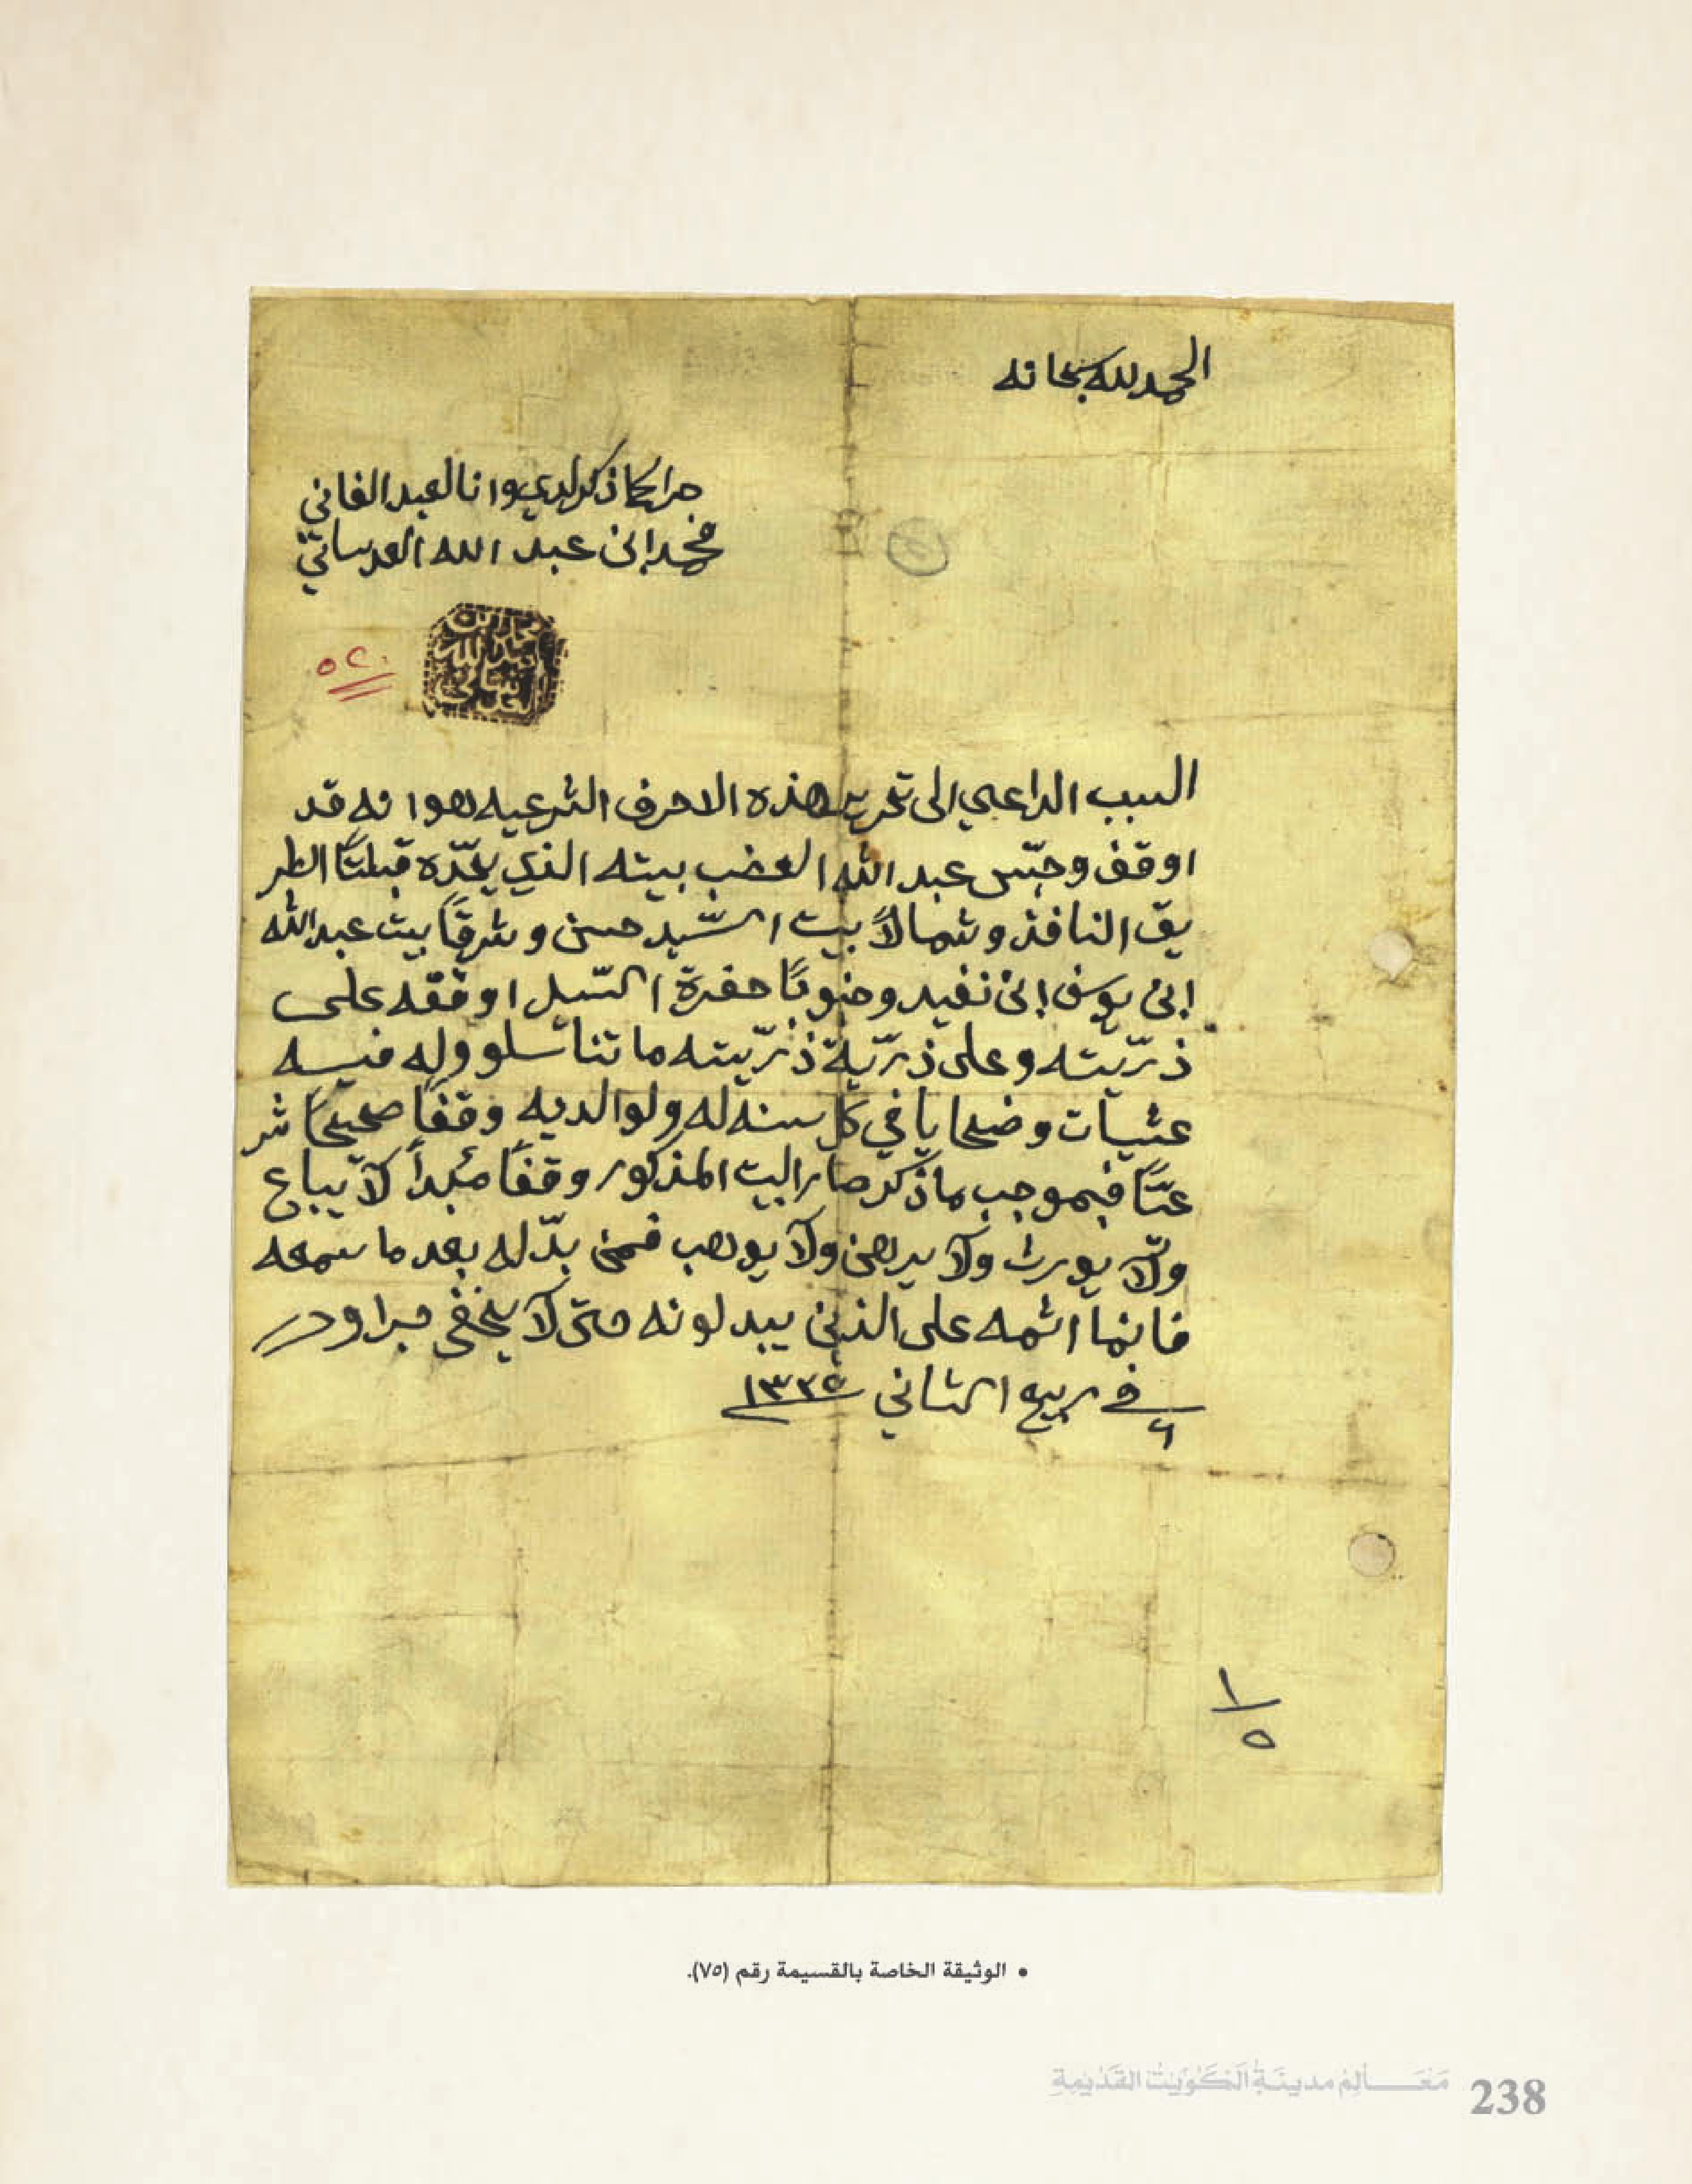 الحمد لله سبحانه
جرا كما ذكر لدي وانا العبد الفاني
محمد ابن عبد الله العدساني
٥٢٠
السبب الداعي الى تحرير هذه الاحرف الشرعيه هو انه قد
اوقف وحبّس عبد الله العضب بيته الذي يحدّه قبلتًا الطر
يق النافذ وشمالاً بيت السّيد حسن وشرقًا بيت عبد الله
ابن يوسف ابن نفيد وجنوبًا حفرة السّيل اوقفه على
ذرّيّته وعلى ذرّيّة ذرّيّته ما تناسلو وله فيه
عشيات وضحايا في كل سنه له ولوالديه وقفًا صحيحًا شر
عيًّا فبموجب ما ذكر صار البيت المذكور وقفًا مئبداً لا يباع
ولا يورث ولا يرهن ولا يوهب فمن بدّله بعد ما سمعه
فانما اثمه على الذين يبدلونه حتى لا يخفى جرا وحرر
في ٦ ربيع الثاني ١٣٣٥
١/٥
• الوثيقة الخاصة بالقسيمة رقم (٧٥).
مَعَالِمُ مدينَةِ الكُوَيْتِ القَدْيمَةِ 238